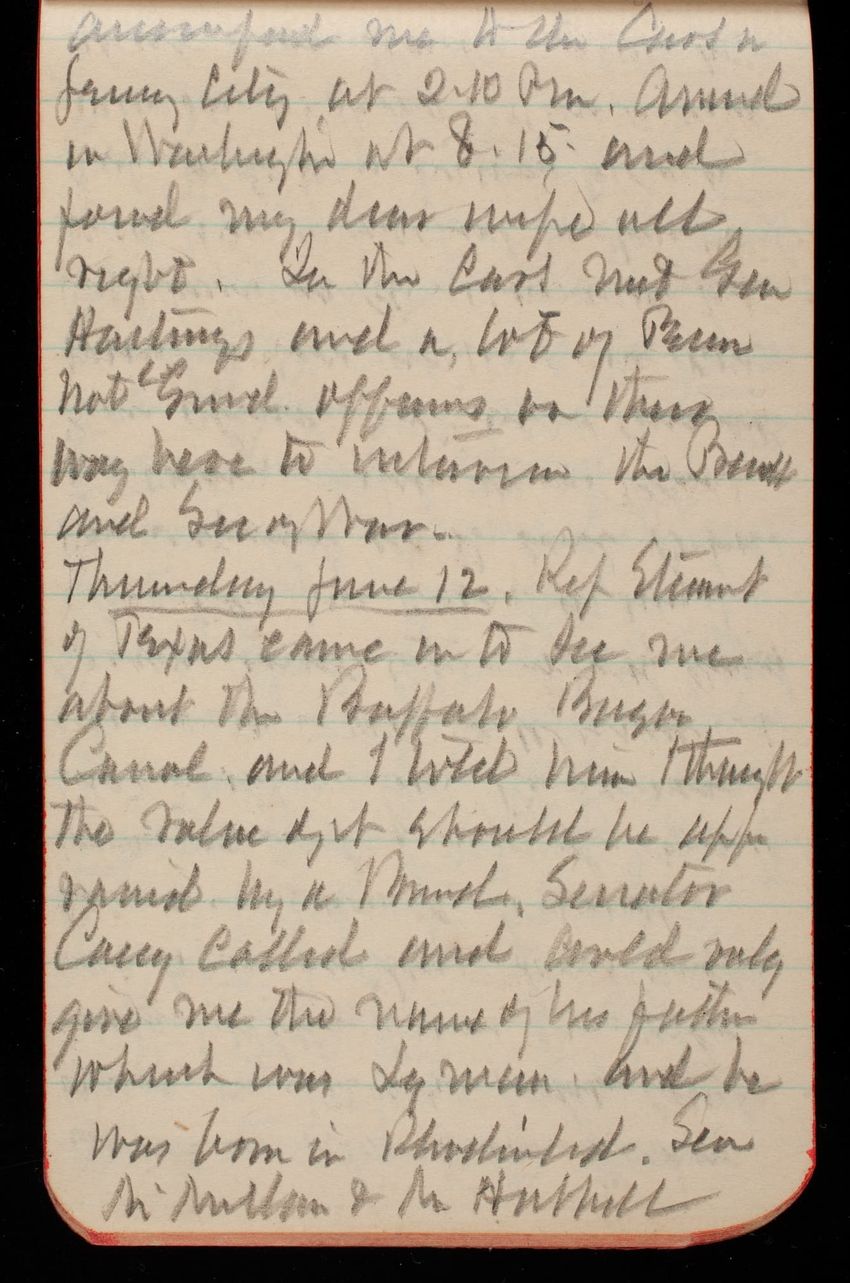 me to the Cars in
Jersey City at 2.10 Pm. Arrived
in Washington at 8.15 and
found my dear wife all
right. In the Cars met Gen
Hastings and a lot of Penn
Nat Guard officers on their
way here to interview the Presdt
and Sec of War.
Thursday June 12. Rep Stewart
of Texas came in to see me
about the Buffalo Bayou
Canal and I told him I thought
the value of it should be app
raised by a Board. Senator
Casey called and could only
give me the name of his father
which was Lyman and he
was born in Sen
McMillan & Mr Hubbell